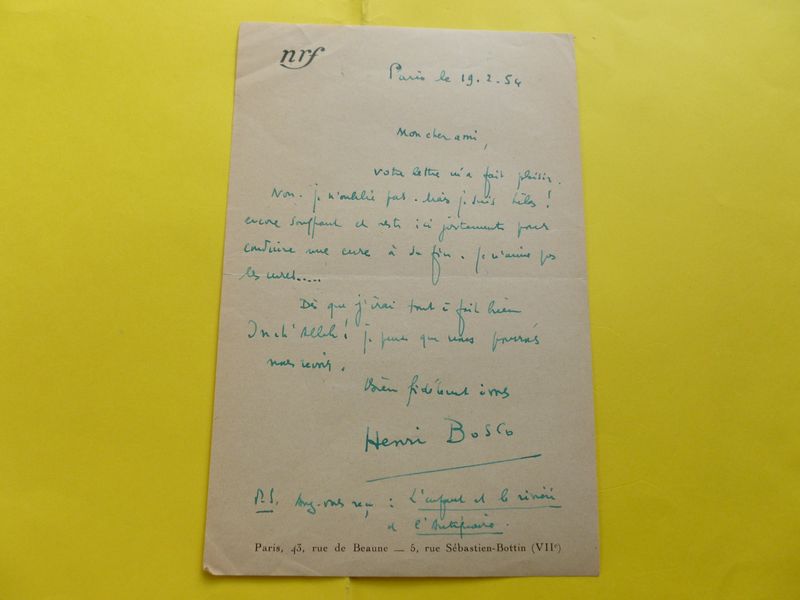 nrf
Paris le 19.2.54
Mon cher ami,
Votre lettre m'a fait plaisir.
Non. je n'oublie pas. Mais je suis hélas!
encore souffrant et reste ici justement pour
conduire une cure à sa fin. Je n'aime pas
les cures.....
Dès que j'irai tout à fait bien
Inch'Allah! je pense que nous pourrons
nous revoir.
Bien fidèlement à vous
Henri Bosco
P.S. Avez-vous reçu : L'enfant et la rivière
et l'Antiquaire.
Paris, 43, rue de Beaune — 5, rue Sébastien-Bottin (VIIe)